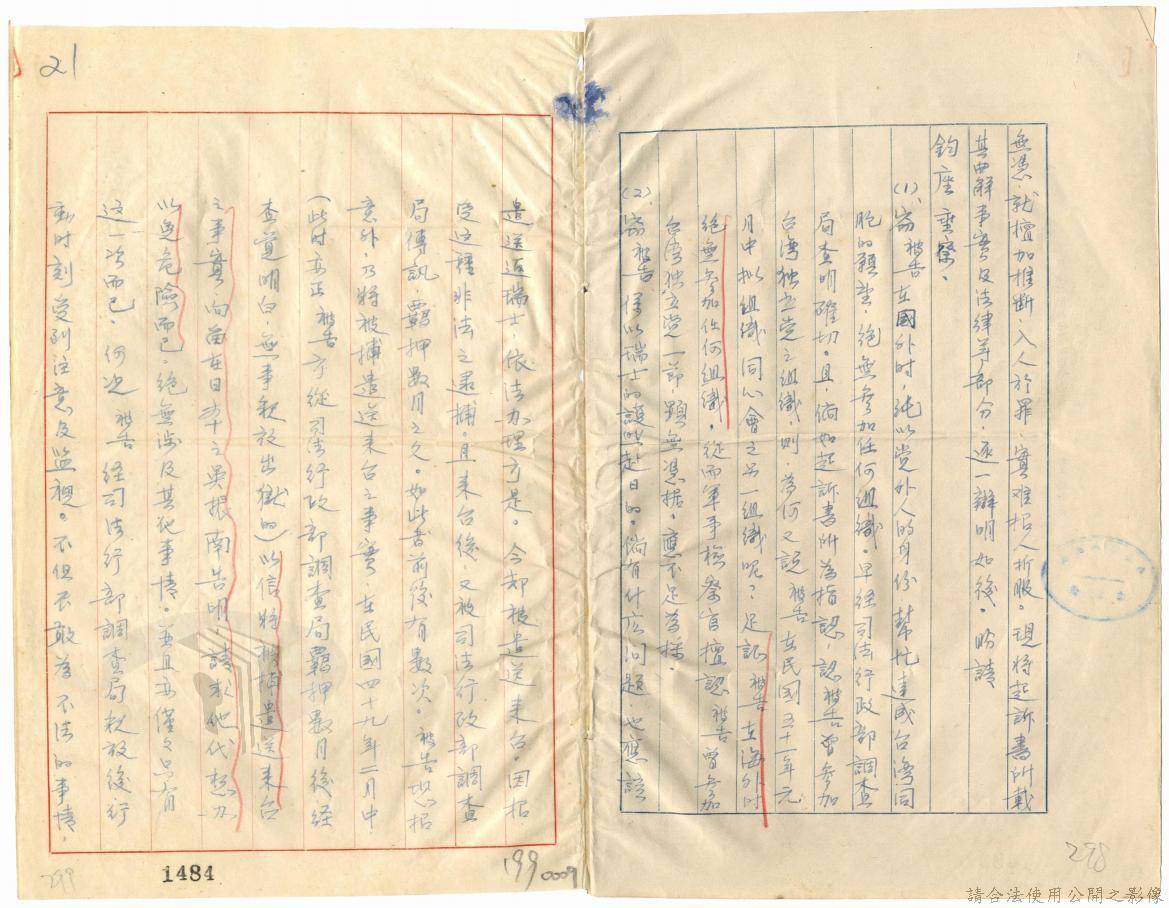 無憑就擅加推斷入人於罪、實難招人折服。現將起訴書所載
其曲解事實及法律等部分、逐一辯明如後。盼請
鈞座 垂察、
(1)、 被告在國外时、純以党外人的身份幫忙達成台灣同
胞的願望、絕無參加任何組織。早經司法行政部調查
局查明確切。且、倘如起訴書所為指認、認被告曾參加
台湾独立党之組織、則、為何又說被告在民國五十一年元
月中拟組織同心會之另一組織呢?、足証被告在海外时
絕無參加任何組織。從而軍事檢察官擅認被告曾參加
台湾独立党一節、顕無憑据。應不足為採。
(2)、 被告僅以瑞士的護照赴日的。倘有什么问题、也應該
是送返瑞士、依法办理才是。今却被遣送来台。因招
受这種非法之逮捕。且来台後、又被司法行政部調查
局傳訊、羈押数月之久。如此者前後有数次。被告恐招
意外、乃將被捕遣送来台之事實、在民國四十九年二月中
(此时亦正被告方從司法行政部調查局羈押数月後経
查覚明白、無事釈放出獄的)以信將被捕遣送来台
之事實向留在日本之吳振南告明、請求他代想办
以免危險而已。絕無涉及其他事情。並且亦僅々只有
这一次而已、何况、被告経司法行部調查局釈放後行
動时刻受到注意及監視。不但不敢為不法的事情、
21
1484
199
0009
299
298
請合法使用公開之影像